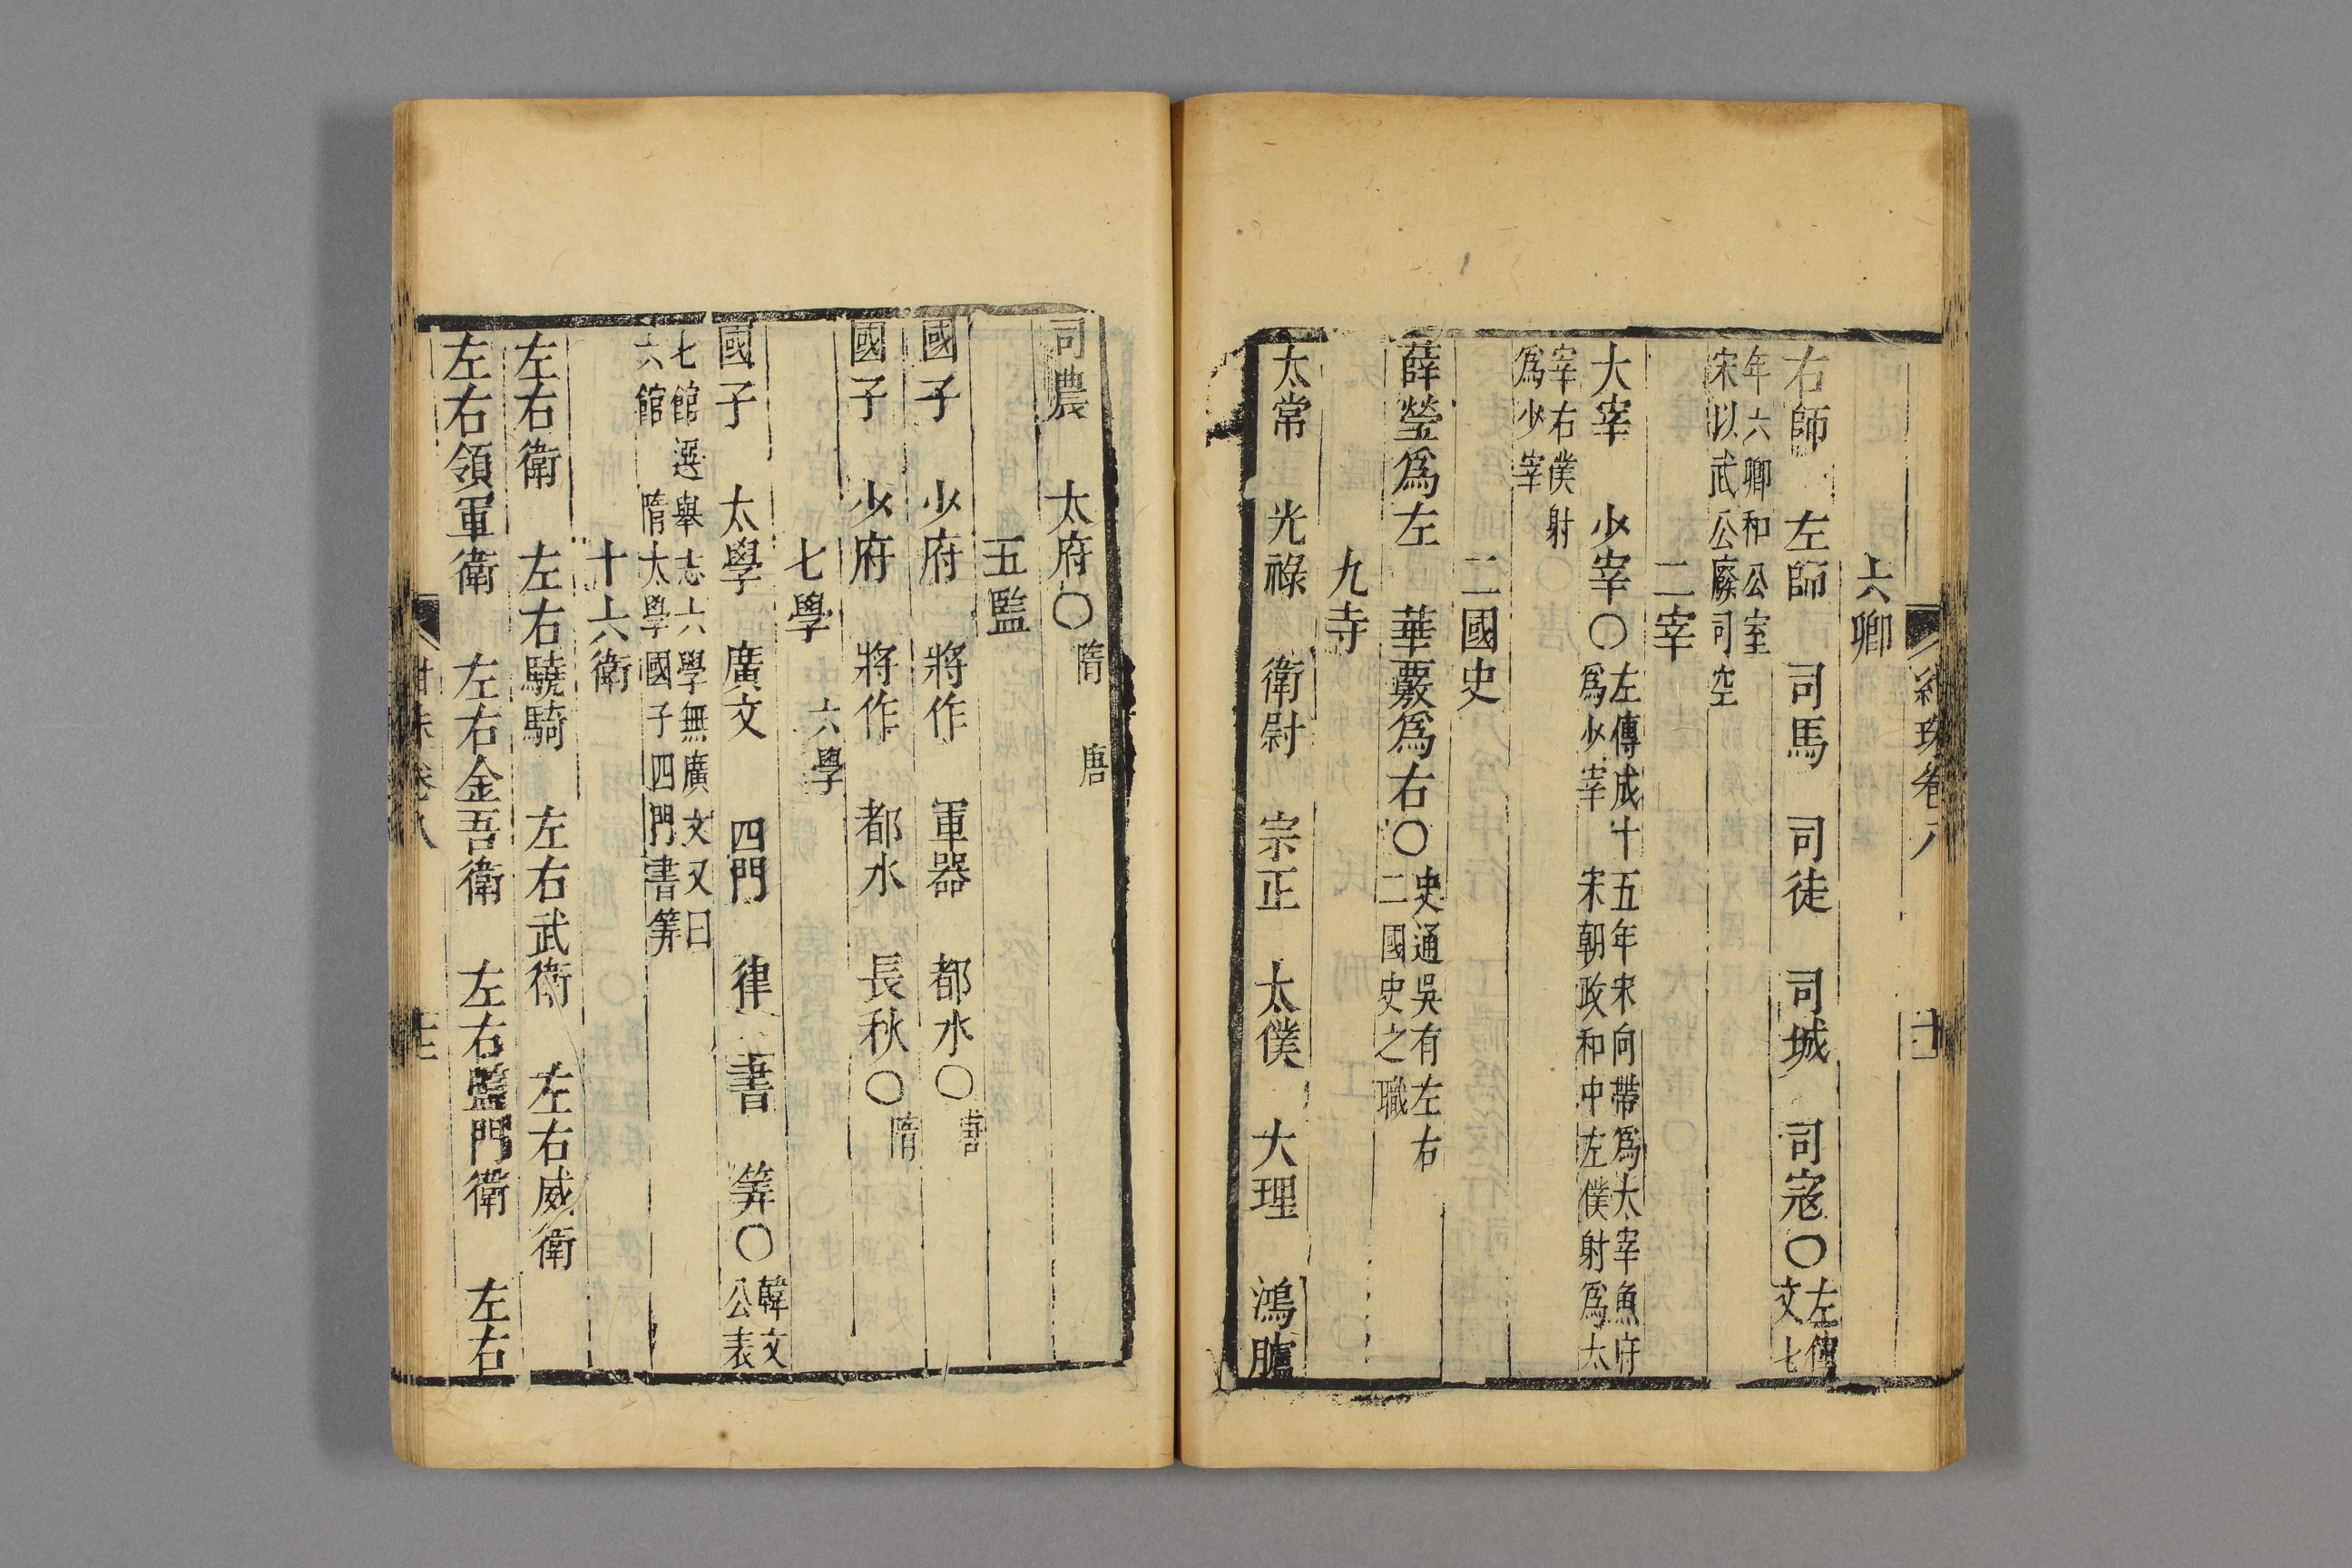 卷八
六卿
右師 左師 司馬 司徒 司城 司寇〇左傳文七
年六卿和公室宋以武公廢司空
二宰
大宰 少宰〇左傳成十五年宋向帶爲太宰魚府爲少宰 宋朝政和中左僕射爲太
宰右僕射爲少宰
二國史
薛瑩爲左 華覈爲右〇史通吳有左右二國史之職
九寺
太常 光祿 衛尉 宗正 太僕 大理 鴻臚
司農 太府〇隋 唐
五監
國子 少府 將作 軍器 都水〇唐
國子 少府 將作 都水 長秋〇隋
七學 六學
國子 太學 廣文 四門 律 書 筭〇韓文公表
七館選舉志六學無廣文又曰六館 隋太學國子四門書筭
十六衛
左右衛 左右驍騎 左右武衛 左右威衛
左右領軍衛 左右金吾衛 左右監門衛 左右